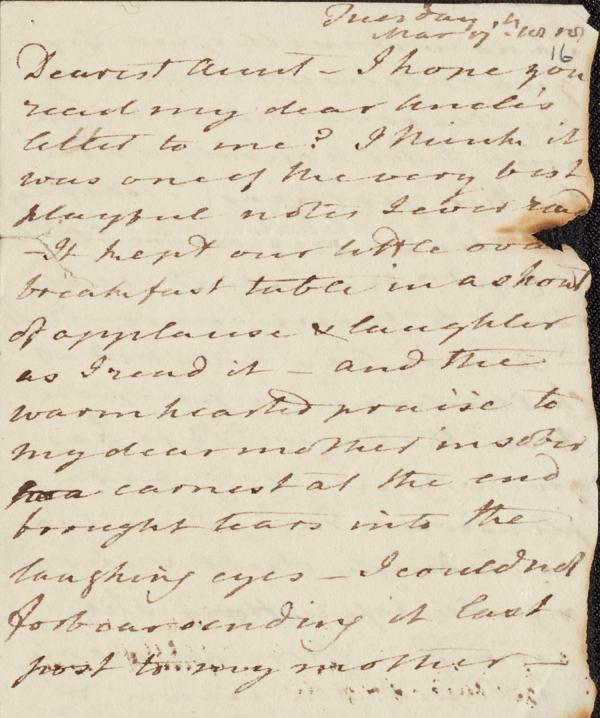 Tuesday
Mar 17th
16
Dearest Aunt – I hope you
read my dear Uncle's
letter to me? I think it
was one of the very best
playful notes I ever read
– It kept our little oval
breakfast table in a shout
of applause & laughter
as I read it – and the
warmhearted praise to
my dear mother in sober
earnest at the end
brought tears into the
laughing eyes – I could not
forbear sending it last
post to my mother –